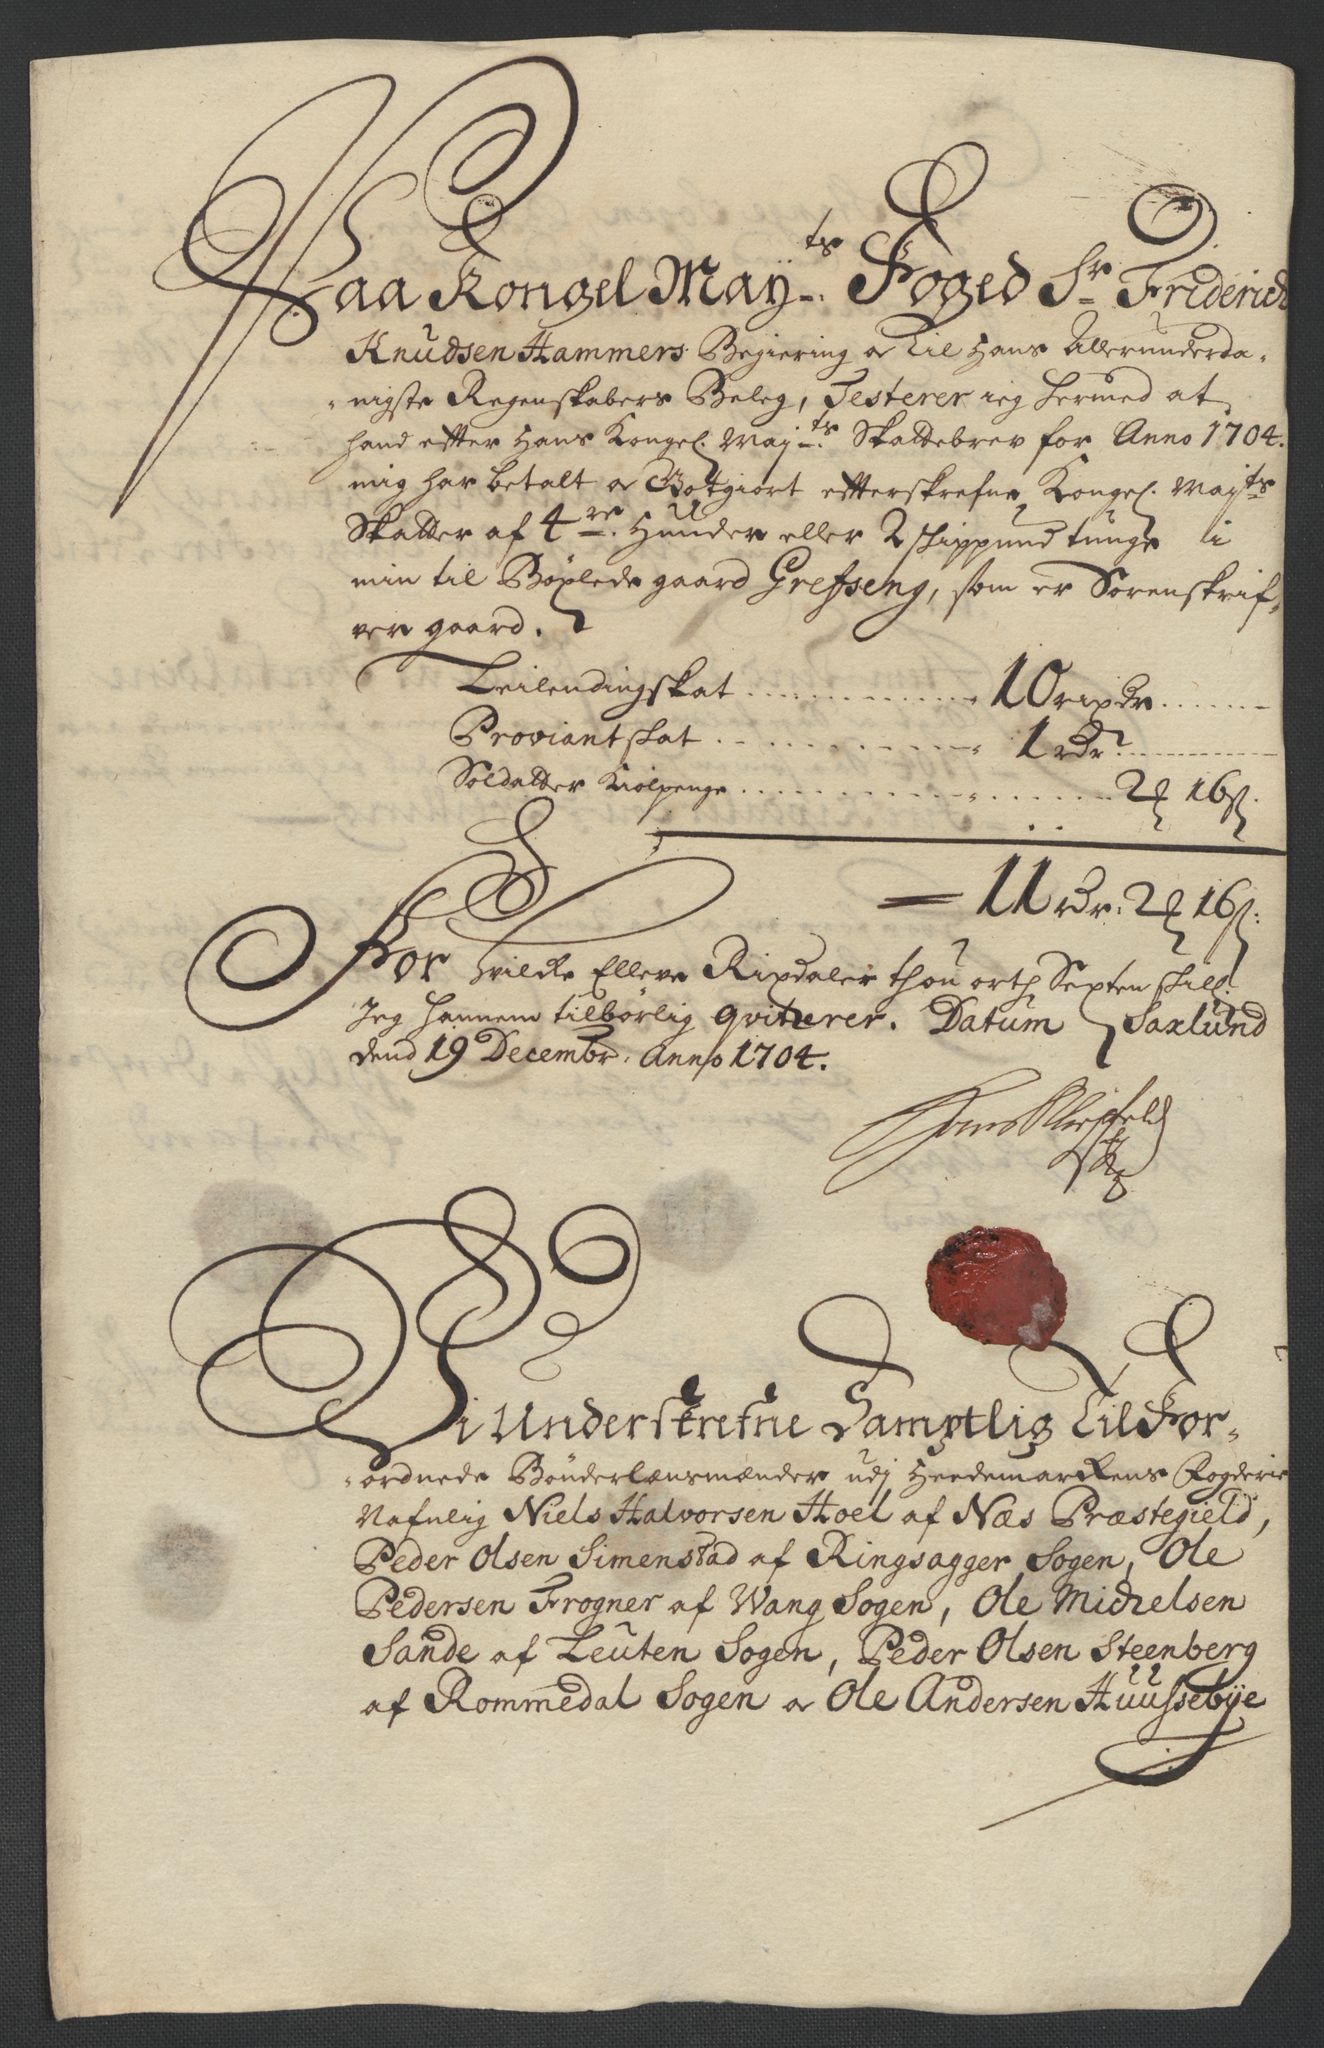 Paa Kongel May:ts Foged Sr Friderich
Knudsen Hammers Begiering oc til Hans Allerunderda-
-nigste Regenskabers Beleg, Testerer ieg hermed at
hand efter Hans Kongel. Mayts: Skattebrev for Anno 1704.
mig har betalt oc Gotgiort efterskrefne Kongel. Mayts
Skatter af 4re. Hunder eller 2 Skippund tunge i
min til Böxlede gaard Grefseng, som er Sorenskrif-
ver gaard.
Leilendingskat 10 rixdr
Proviantskat 1 rdr
Soldatter Kiolpenge 2 16 s.
11 rdr. 2 16 s:
For hvilcke Elleve Rixdaler thou orth Sexten skill.
Jeg hannem tilbörlig qviterer. Datum Saxlund
dend 19 Decembr. Anno 1704.
Vi Underskrefne Samptlig Til For-
-ordnede Bönderlensmænder udj Heedemarkens Fogderie
Nafnlig Niels Halvorsen Hoel af Næs Præstegield,
Peder Olsen Simenstad af Ringsagger Sogen, Ole
Pedersen Frogner af Wang Sogen, Ole Michelsen
Sande af Leuten Sogen, Peder Olsen Steenberg
af Rommedal Sogen oc Ole Andersen Huussebye